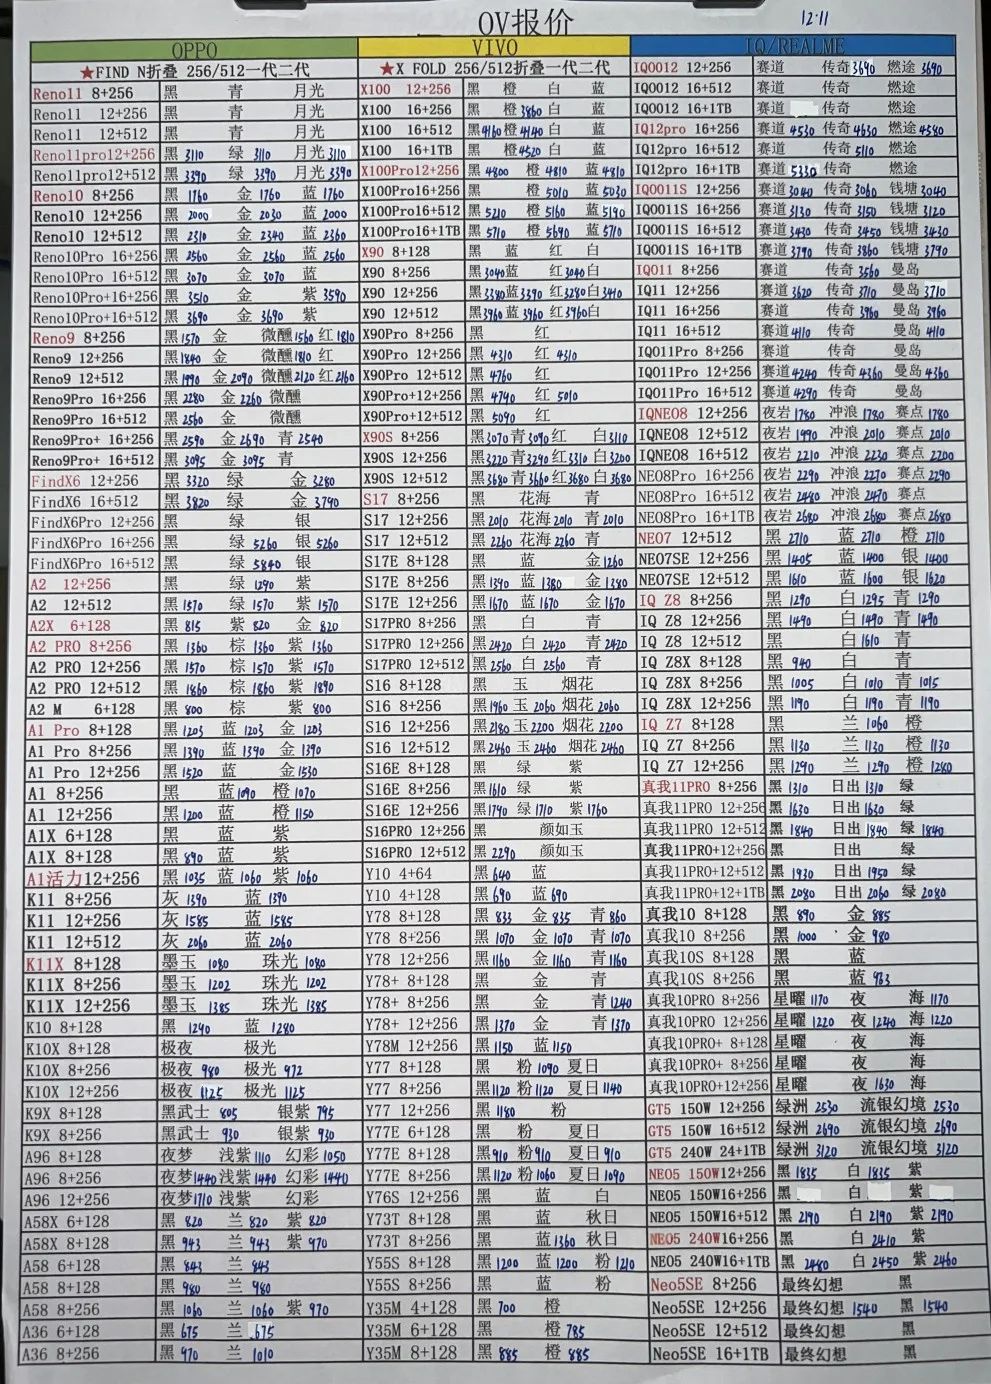 OV报价 12.11
OPPO VIVO IQ/REALME
★FIND N折叠 256/512一代二代 ★X FOLD 256/512折叠一代二代 IQOO12 12+256 赛道 传奇3690 燃途 3690
Reno11 8+256 黑 青 月光 X100 12+256 黑 橙 白 蓝 IQOO12 16+512 赛道 传奇 燃途
Reno11 12+256 黑 青 月光 X100 16+256 黑 橙3860白 蓝 IQOO12 16+1TB 赛道 传奇 燃途
Reno11 12+512 黑 青 月光 X100 16+512 黑4160橙4140白 蓝 IQ12pro 16+256 赛道4530 传奇4630 燃途4580
Reno11pro12+256 黑 3110 绿 3110 月光3110 X100 16+1TB 黑 橙4520白 蓝 IQ12pro 16+512 赛道 传奇5110 燃途
Reno11pro12+512 黑 3390 绿 3390 月光3390 X100Pro12+256 黑 4800 橙 4810 蓝4810 IQ12pro 16+1TB 赛道5330 传奇 燃途
Reno10 8+256 黑 1760 金 1760 蓝 1760 X100Pro16+256 黑 橙 5010 蓝5030 IQOO11S 12+256 赛道3040 传奇3060 钱塘3040
Reno10 12+256 黑 2000 金 2030 蓝 2000 X100Pro16+512 黑 5210 橙 5160 蓝5190 IQOO11S 16+256 赛道3130 传奇 3150 钱塘 3120
Reno10 12+512 黑 2310 金 2340 蓝 2360 X100Pro16+1TB 黑 5710 橙 5690 蓝5710 IQOO11S 16+512 赛道3430 传奇 3450 钱塘 3430
Reno10Pro 16+256 黑 2560 金 2560 蓝 2560 X90 8+128 黑 蓝 红 白 IQOO11S 16+1TB 赛道3790 传奇3860 钱塘 3790
Reno10Pro 16+512 黑 3070 金 3070 蓝 X90 8+256 黑3040蓝 红3040白 IQO11 8+256 赛道 传奇3560 曼岛
Reno10Pro+16+256 黑 3510 金 紫 3590 X90 12+256 黑3380蓝3390 红3280白3410 IQ11 12+256 赛道3620 传奇3710 曼岛3710
Reno10Pro+16+512 黑 3690 金 3690 紫 X90 12+512 黑3960蓝3960 红3960白 IQ11 16+256 赛道 传奇3960 曼岛3960
Reno9 8+256 黑1570 金 微醺1560 红 1810 X90Pro 8+256 黑 红 IQ11 16+512 赛道4110 传奇 曼岛 4110
Reno9 12+256 黑1840 金 微醺1810 红 X90Pro 12+256 黑 4310 红 4310 IQO11Pro 8+256 赛道 传奇 曼岛
Reno9 12+512 黑1990 金 2090 微醺2120 红2160 X90Pro 12+512 黑 4760 红 IQO11Pro 12+256 赛道4240 传奇4360 曼岛4360
Reno9Pro 16+256 黑 2280 金 2260 微醺 X90Pro+12+256 黑 4740 红 5010 IQO11Pro 16+512 赛道4290 传奇 曼岛
Reno9Pro 16+512 黑 2560 金 微醺 X90Pro+12+512 黑 5090 红 IQNEO8 12+256 夜岩 1780 冲浪 1780 赛点 1780
Reno9Pro+ 16+256 黑 2590 金2690 青 2540 X90S 8+256 黑3070青3090红 白3110 IQNEO8 12+512 夜岩 1990 冲浪 2010 赛点 2010
Reno9Pro+ 16+512 黑 3095 金 3095 青 X90S 12+256 黑3220青3290红3310 白3200 IQNEO8 16+512 夜岩 2210 冲浪 2230 赛点 2200
FindX6 12+256 黑 3320 绿 金 3280 X90S 12+512 黑3680青3660红3680 白3680 NEO8Pro 16+256 夜岩 2290 冲浪 2270 赛点 2290
FindX6 16+512 黑 3820 绿 金 3790 S17 8+256 黑 花海 青 NEO8Pro 16+512 夜岩 2480 冲浪 2470 赛点
FindX6Pro 12+256 黑 绿 银 S17 12+256 黑2010 花海2010 青2010 NEO8Pro 16+1TB 夜岩 2680 冲浪 2680 赛点2680
FindX6Pro 16+256 黑 绿 5260 银 5260 S17 12+512 黑2260 花海2260 青 NEO7 12+512 黑 2710 蓝 2710 橙 2710
FindX6Pro 16+512 黑 绿 5840 银 S17E 8+128 黑 蓝 金1260 NEO7SE 12+256 黑 1405 蓝 1400 银 1400
A2 12+256 黑 绿 1290 紫 S17E 8+256 黑1390 蓝 1380 金 1380 NEO7SE 12+512 黑 1610 蓝 1600 银 1620
A2 12+512 黑 1570 绿 1570 紫 1570 S17E 12+256 黑1670 蓝1670 金1670 IQ Z8 8+256 黑 1290 白 1295 青 1290
A2X 6+128 黑 815 紫 820 金 820 S17PRO 8+256 黑 白 青 IQ Z8 12+256 黑 1490 白 1490 青 1490
A2 PRO 8+256 黑 1360 棕 1360 紫 1360 S17PRO 12+256 黑2420 白 2420 青 2420 IQ Z8 12+512 黑 白1610 青
A2 PRO 12+256 黑 1570 棕 1570 紫 1570 S17PRO 12+512 黑2560 白 2560 青 IQ Z8X 8+128 黑 940 白 青
A2 PRO 12+512 黑 1860 棕 1860 紫 1890 S16 8+128 黑 玉 烟花 IQ Z8X 8+256 黑 1005 白 1010 青 1015
A2 M 6+128 黑 800 棕 紫 800 S16 8+256 黑1960 玉 2060 烟花2060 IQ Z8X 12+256 黑 1190 白 1190 青 1190
A1 Pro 8+128 黑 1203 蓝 1203 金 1203 S16 12+256 黑2180 玉2200 烟花 2200 IQ Z7 8+128 黑 兰 1060 橙
A1 Pro 8+256 黑 1390 蓝 1390 金 1390 S16 12+512 黑2460 玉2460 烟花2460 IQ Z7 8+256 黑 1130 兰 1130 橙 1130
A1 Pro 12+256 黑 1520 蓝 金1530 S16E 8+128 黑 绿 紫 IQ Z7 12+256 黑 1290 兰 1290 橙 1280
A1 8+256 黑 蓝1090 橙 1070 S16E 8+256 黑1610 绿 紫 真我11PRO 8+256 黑 1310 日出 1310 绿
A1 12+256 黑 1200 蓝 橙 1150 S16E 12+256 黑1740 绿 1710 紫 1760 真我11PRO 12+256 黑 1630 日出 1630 绿
A1X 6+128 黑 蓝 紫 S16PRO 12+256 黑 颜如玉 真我11PRO 12+512 黑 1840 日出 1840 绿 1840
A1X 8+128 黑 890 蓝 紫 S16PRO 12+512 黑 2290 颜如玉 真我11PRO+12+256 黑 日出 绿
A1活力12+256 黑 1035 蓝 1060 紫 1060 Y10 4+64 黑 640 蓝 真我11PRO+12+512 黑 1930 日出 1950 绿
K11 8+256 灰 1390 蓝 1390 Y10 4+128 黑 690 蓝 690 真我11PRO+12+1TB 黑 2080 日出 2060 绿 2080
K11 12+256 灰 1585 蓝 1585 Y78 8+128 黑 833 金 835 青 860 真我10 8+128 黑 890 金 885
K11 12+512 灰 2060 蓝 2060 Y78 8+256 黑 1070 金 1070 青 1070 真我10 8+256 黑 1000 金 980
K11X 8+128 墨玉 1080 珠光 1080 Y78 12+256 黑1160 金 1160 青 1160 真我10S 8+128 黑 蓝
K11X 8+256 墨玉 1202 珠光 1202 Y78+ 8+128 黑 金 青 真我10S 8+256 黑 蓝 983
K11X 12+256 墨玉 1385 珠光 1385 Y78+ 8+256 黑 金 青1240 真我10PRO 8+256 星曜 1170 夜 海 1170
K10 8+128 黑 1290 蓝 1280 Y78+ 12+256 黑 1370 金 青1370 真我10PRO 12+256 星曜 1220 夜 1240 海 1220
K10X 8+128 极夜 极光 Y78M 12+256 黑1150 蓝1150 真我10PRO+ 8+128 星曜 夜 海
K10X 8+256 极夜 980 极光 972 Y77 8+128 黑 粉1090 夏日 真我10PRO+ 8+256 星曜 夜 海
K10X 12+256 极夜 1125 极光 1125 Y77 8+256 黑1120 粉1120 夏日1140 真我10PRO+12+256 星曜 夜 1630 海
K9X 8+128 黑武士 805 银紫 795 Y77 12+256 黑 1180 粉 GT5 150W 12+256 绿洲 2530 流银幻境 2530
K9X 8+256 黑武士 930 银紫 930 Y77E 6+128 黑 粉 夏日 GT5 150W 16+512 绿洲 2690 流银幻境 2690
A96 8+128 夜梦 浅紫1110 幻彩1050 Y77E 8+128 黑910 粉910 夏日910 GT5 240W 24+1TB 绿洲 3120 流银幻境 3120
A96 8+256 夜梦1440浅紫1440 幻彩 1440 Y77E 8+256 黑1120 粉1060 夏日1090 NEO5 150W12+256 黑 1835 白 1835 紫
A96 12+256 夜梦1710 浅紫 幻彩 Y76S 12+256 黑 蓝 白 NEO5 150W16+256 黑 白 紫
A58X 6+128 黑 820 兰 820 紫 820 Y73T 8+128 黑 蓝 秋日 NEO5 150W16+512 黑 2190 白 2190 紫 2190
A58X 8+128 黑 943 兰 943 紫 970 Y73T 8+256 黑 蓝1360 秋日 NEO5 240W16+256 黑 白 2410 紫
A58 6+128 黑 843 兰 843 Y55S 8+128 黑1200 蓝1200 粉 1210 NEO5 240W16+1TB 黑 2480 白 2450 紫 2460
A58 8+128 黑 980 兰 980 Y55S 8+256 黑 蓝 粉 Neo5SE 8+256 最终幻想 黑
A58 8+256 黑 1060 兰 1060 紫 970 Y35M 4+128 黑 700 橙 Neo5SE 12+256 最终幻想 1540 黑 1540
A36 6+128 黑 675 兰 675 Y35M 6+128 黑 橙 785 Neo5SE 12+512 最终幻想 黑
A36 8+256 黑 970 兰 1010 Y35M 8+128 黑 885 橙 885 Neo5SE 16+1TB 最终幻想 黑